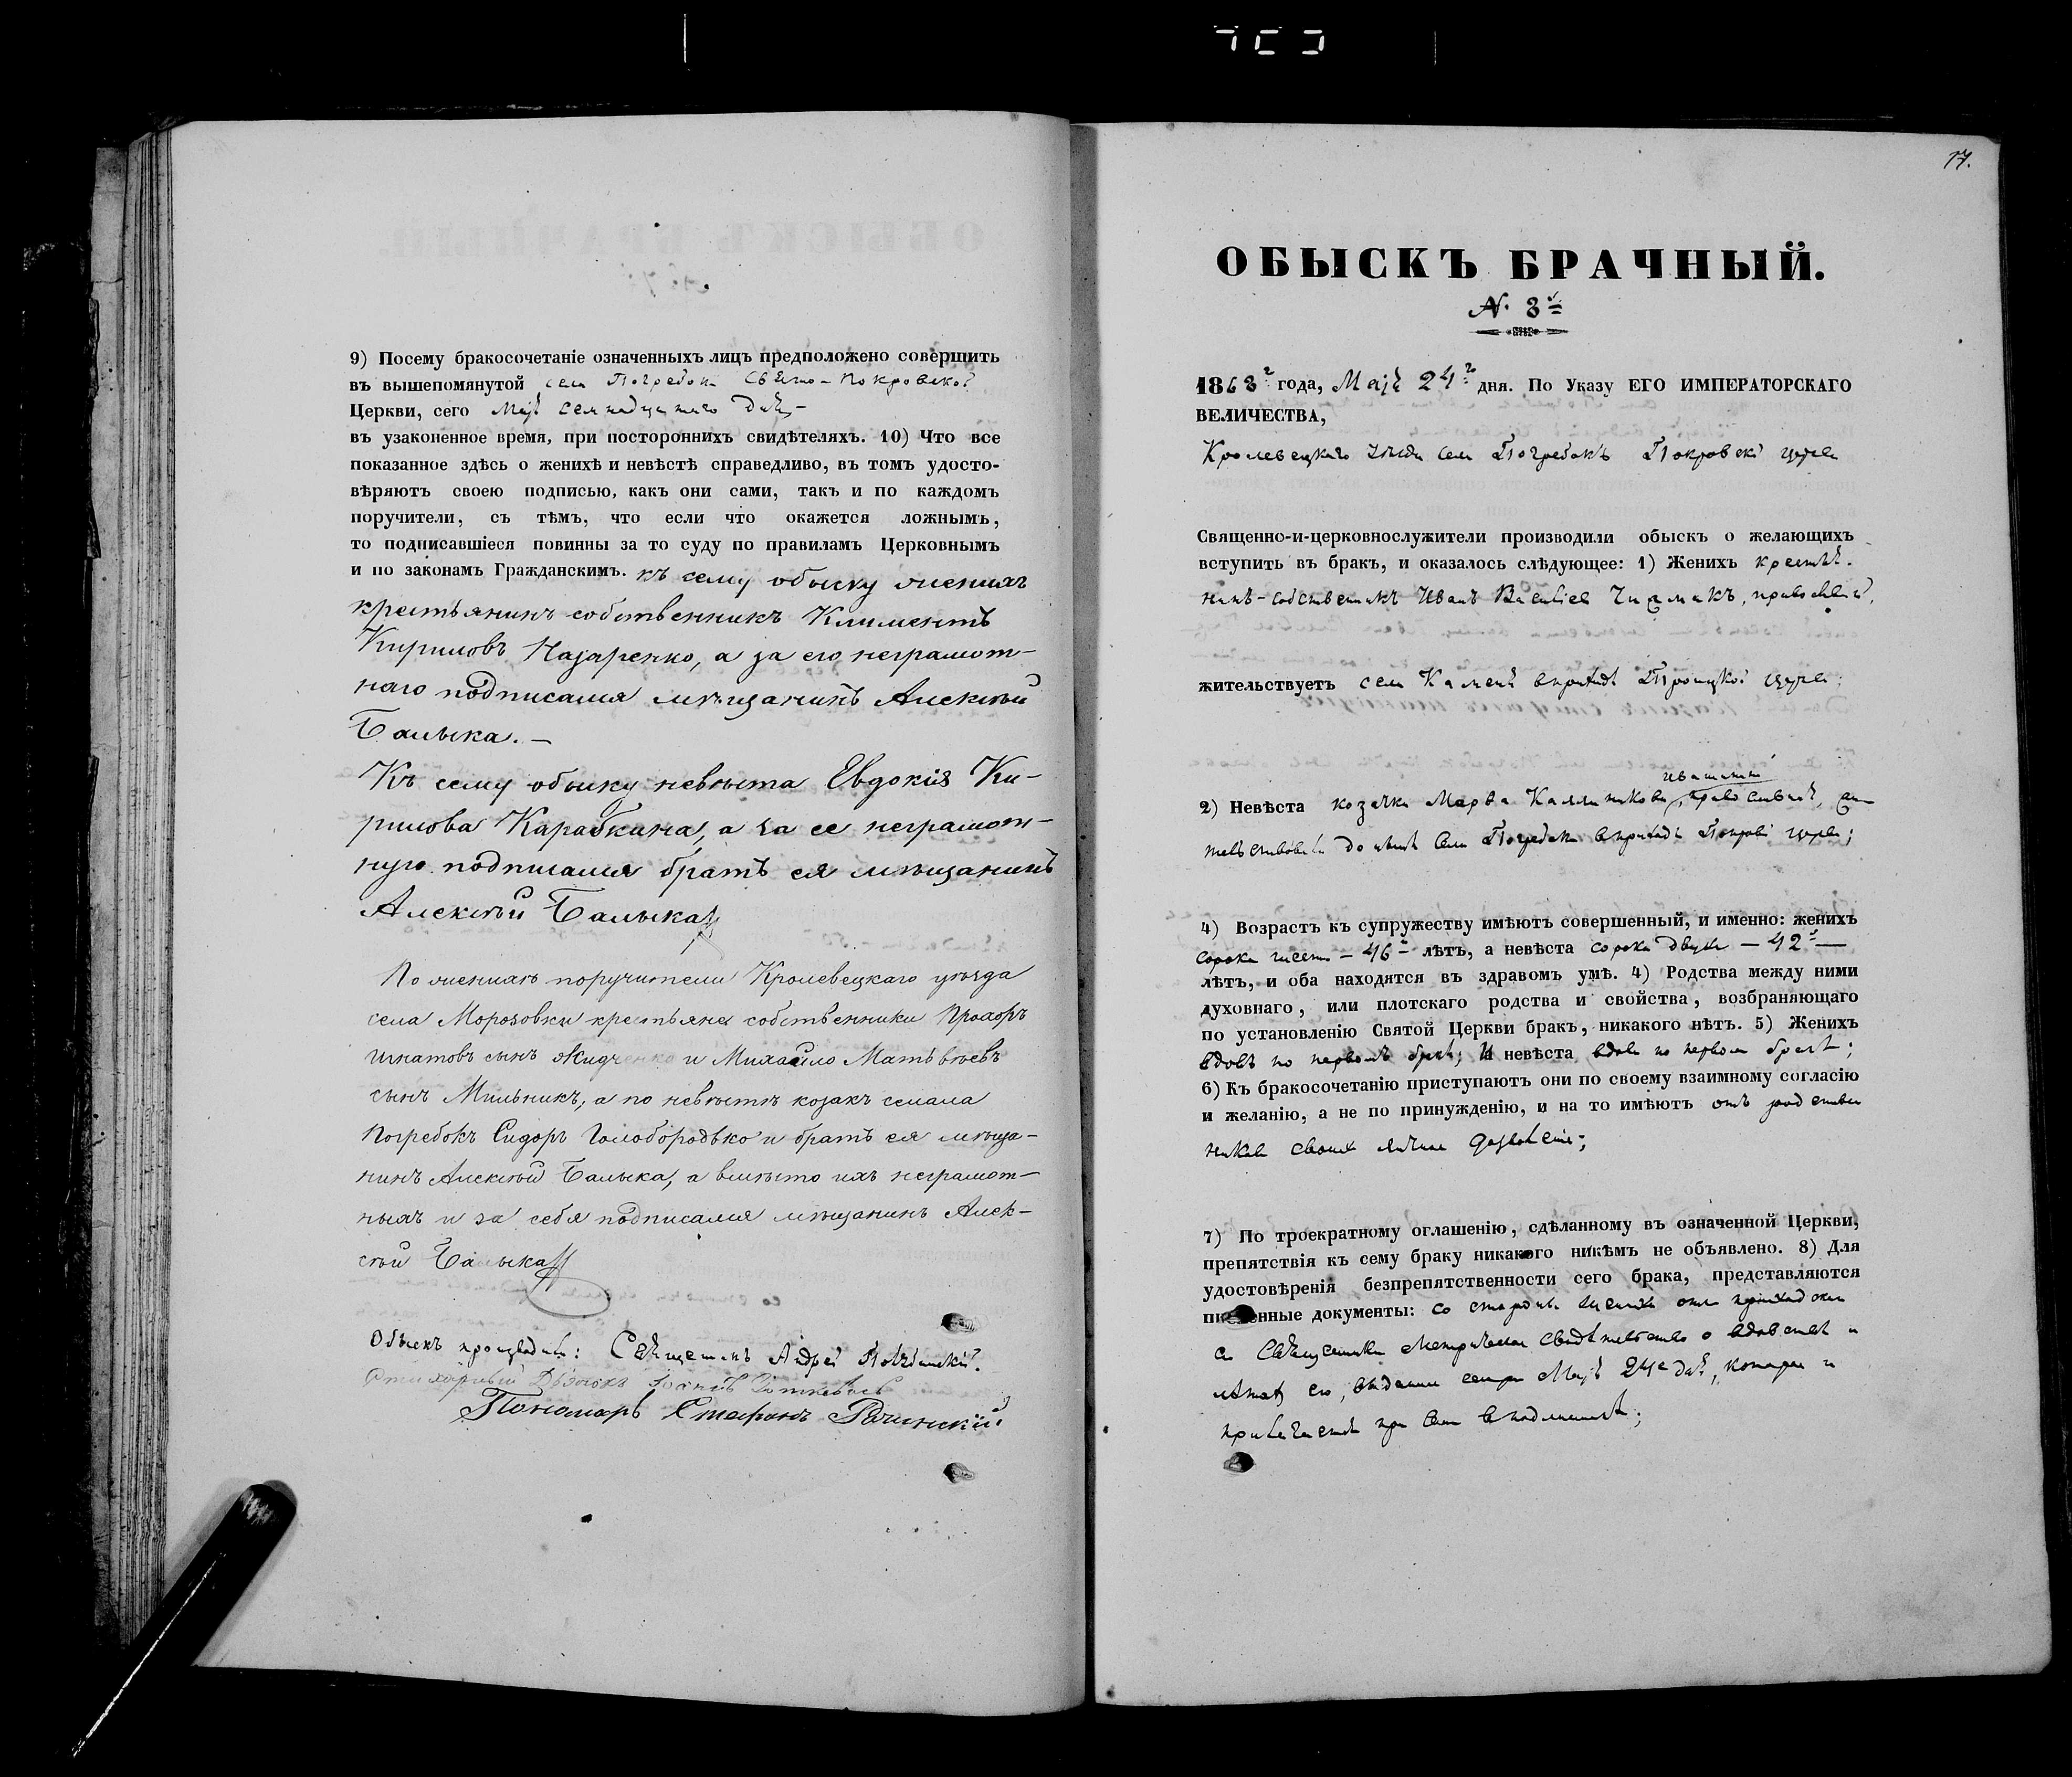 9) Посему бракосочетаніе означенныхъ лицъ предположено совершить
въ вышепомянутой села Погребокъ Свято-Покровской
Церкви, сего Маія семнадцатаго дня
въ узаконенное время, при постороннихъ свидѣтеляхъ. 10) Что все
показанное здѣсь о женихѣ и невѣстѣ справедливо, въ томъ удосто-
вѣряютъ своею подписью, какъ они сами, такъ и по каждомъ
поручители, съ тѣмъ, что если что окажется ложнымъ,
то подписавшіеся повинны за то суду по правиламъ Церковнымъ
и по законамъ Гражданскимъ. къ сему обыску женихъ
крестьянинъ собственникъ Климентъ
Кириловъ Назаренко, а за его неграмот-
наго подписался мѣщанинъ Алексѣй
Балыка. —
Къ сему обыску невѣста Евдокія Ки-
рилова Карабкина, а за ее неграмот-
ную подписался братъ ея мѣщанинъ
Алексѣй Балыка
По женихѣ поручители Кролевецкаго уѣзда
села Морозовки крестьяне собственники Прохоръ
Игнатовъ сынъ Жидченко и Михайло Матвѣевъ
сынъ Мильникъ, а по невѣстѣ козакъ села
Погребокъ Сидоръ Голобородько и братъ ея мѣща-
нинъ Алексѣй Балыка, а вмѣсто ихъ неграмот-
ныхъ и за себя подписался мѣщанинъ Алек-
сѣй Балыка
Обыскъ производили: Священникъ Андрей
Стихарный Дьячокъ
Пономарь Стефанъ Рачинскій
17.
ОБЫСКЪ БРАЧНЫЙ.
N. 8й
1868г года, Маія 24го дня. По Указу ЕГО ИМПЕРАТОРСКАГО
ВЕЛИЧЕСТВА,
Кролевецкаго уѣзда села Погребокъ Покровской церкви
Священно-и-церковнослужители производили обыскъ о желающихъ
вступить въ бракъ, и оказалось слѣдующее: 1) Женихъ крестья-
нинъ-собственникъ Иванъ Васильевъ православный,
жительствуетъ села Каменя въ приходѣ Троицкой церкви;
2) Невѣста козачка Марѳа Каллиникова Ивашина, православная, жи-
тельствовала до нынѣ села Погребокъ въ приходѣ Покровской церкви;
4) Возрастъ къ супружеству имѣютъ совершенный, и именно: женихъ
сорока шести — 46 — лѣтъ, а невѣста сорока двухъ — 42 —
лѣтъ, и оба находятся въ здравомъ умѣ. 4) Родства между ними
духовнаго, или плотскаго родства и свойства, возбраняющаго
по установленію Святой Церкви бракъ, никакого нѣтъ. 5) Женихъ
вдовъ по первомъ бракѣ; И невѣста вдова по первом бракѣ;
6) Къ бракосочетанію приступаютъ они по своему взаимному согласію
и желанію, а не по принужденію, и на то имѣютъ отъ родствен
никовъ своихъ личное дозволеніе;
7) По троекратному оглашенію, сдѣланному въ означенной Церкви,
препятствія къ сему браку никакого никѣмъ не объявлено. 8) Для
удостовѣренія безпрепятственности сего брака, представляются
письменные документы: со стороны жениха отъ приходска
го Священника метрическое свидѣтельство о вдовствѣ и
лѣтахъ его, выданное сего Маія 24го дня, которое и
прилагается при семъ въ подлинникѣ;